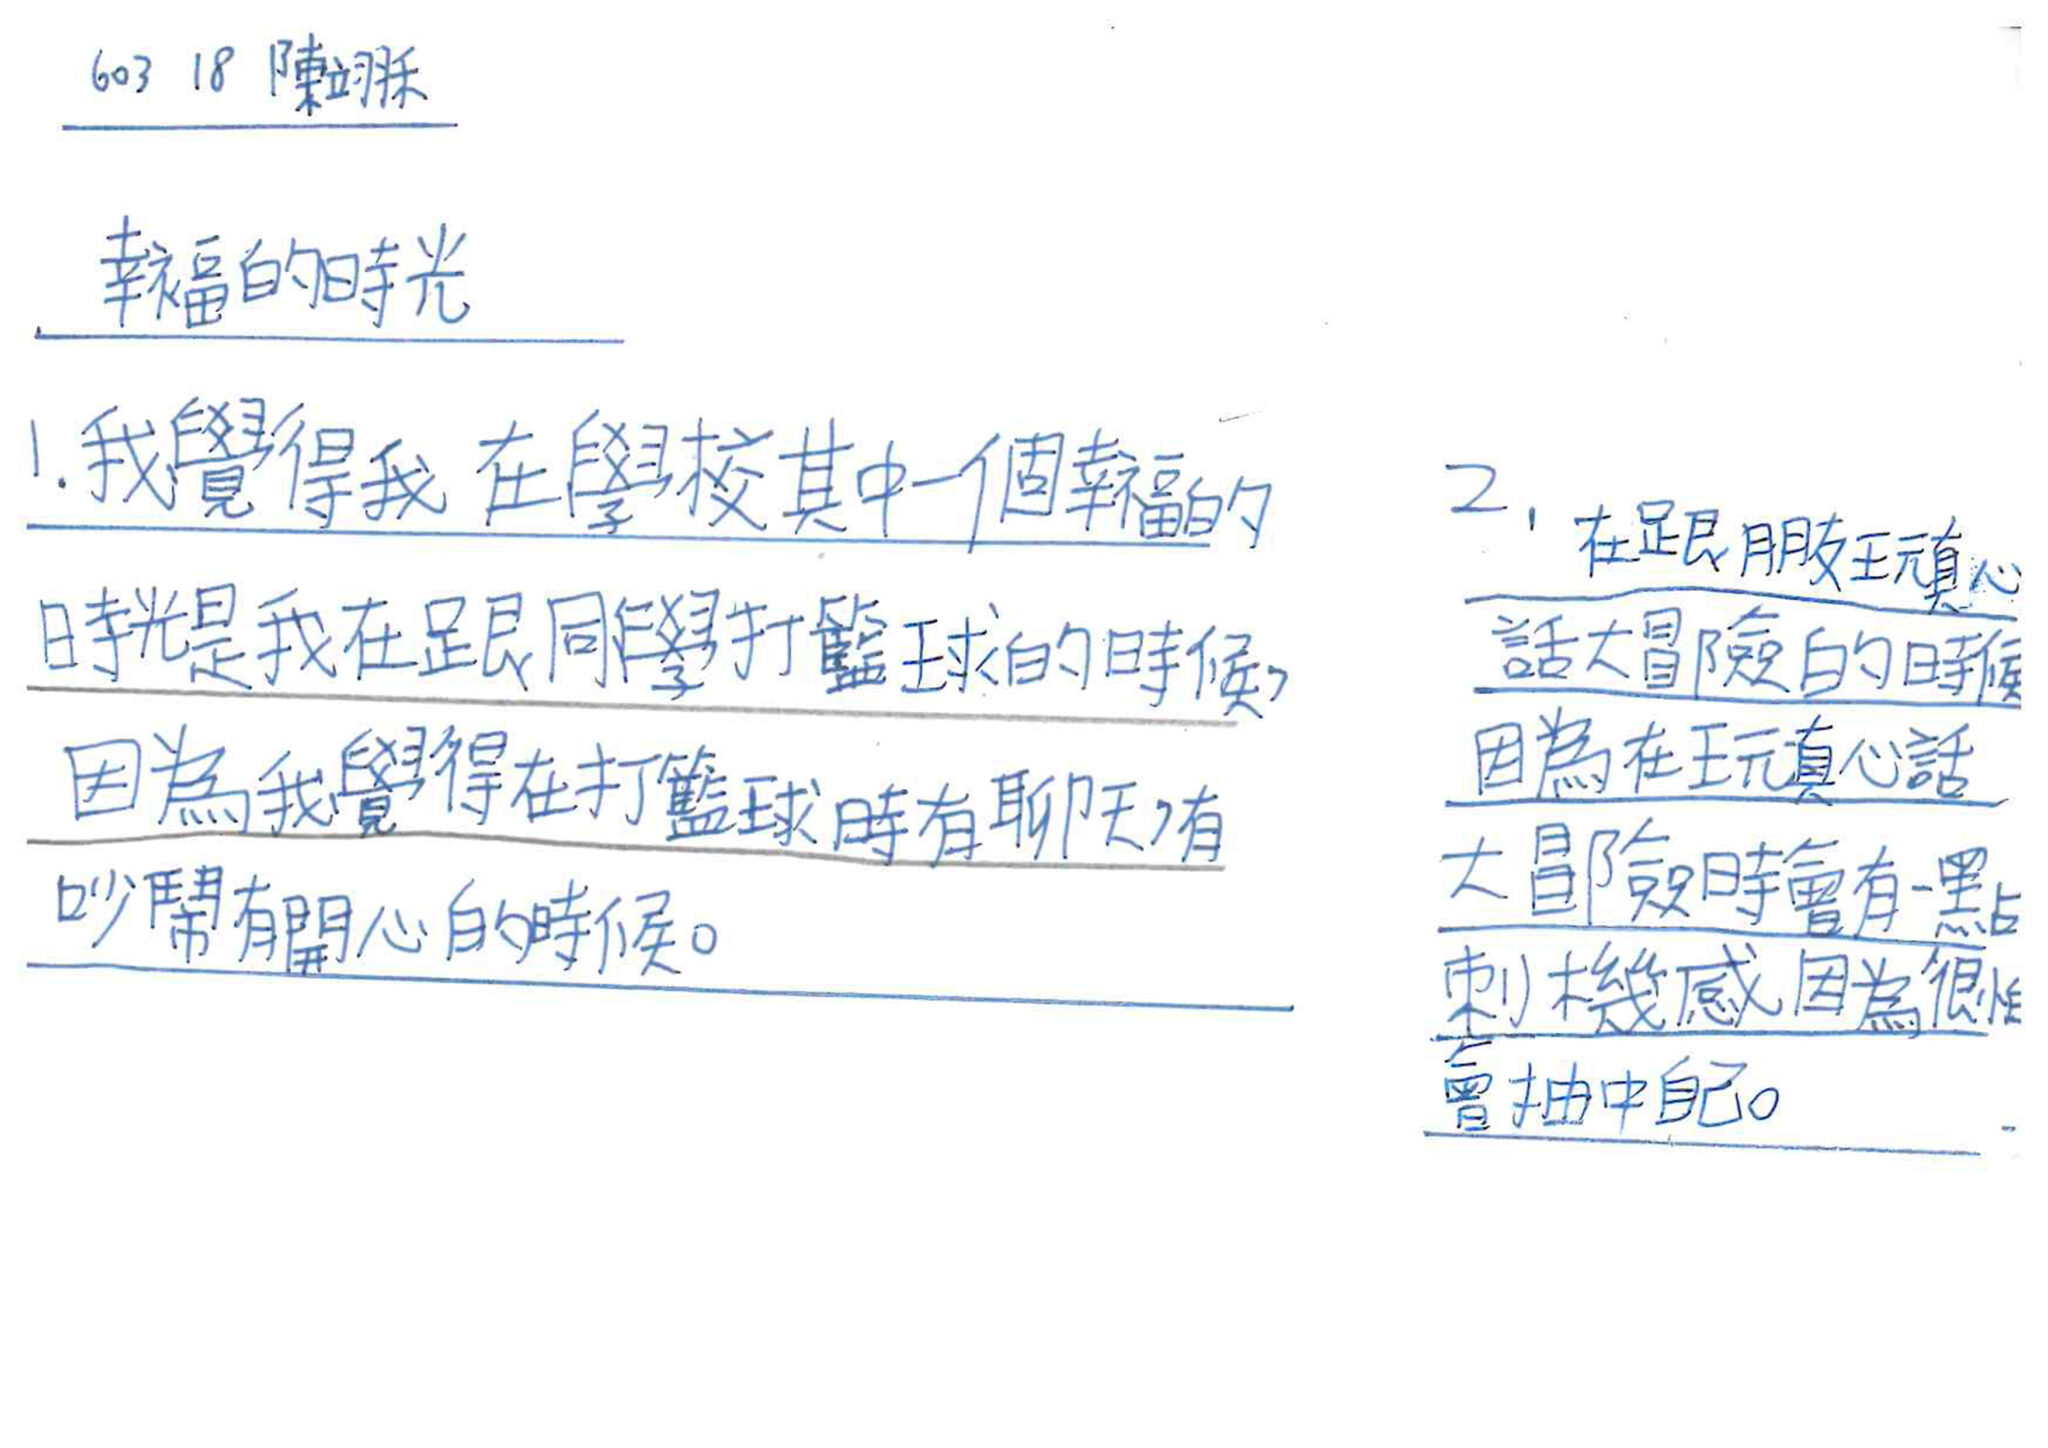 603 18 陳翊秝
幸福的時光
1.我覺得我在學校其中一個幸福的
時光是我在跟同學打籃球的時候,
因為我覺得在打籃球時有聊天,有
吵鬧有開心的時候。
2.在跟朋友玩真心
話大冒險的時候
因為在玩真心話
大冒險時會有一點
刺機感因為很怕
會抽中自己。